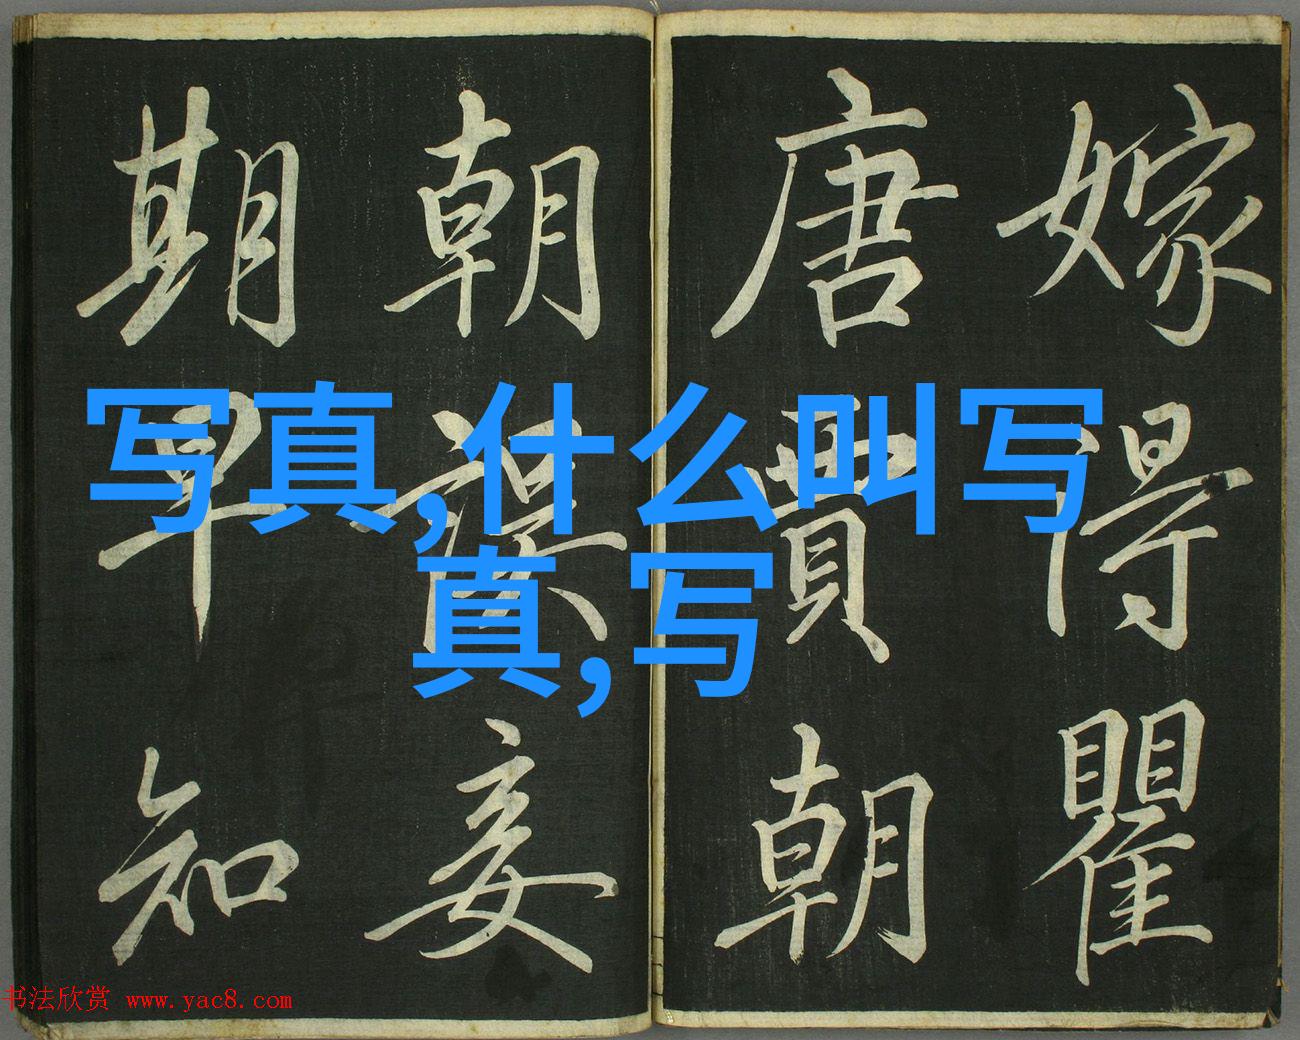 嫁得瞿
唐賈朝
朝誤妾
期早知
写真,什么叫写
真,写
书法欣赏 www.yac8.com